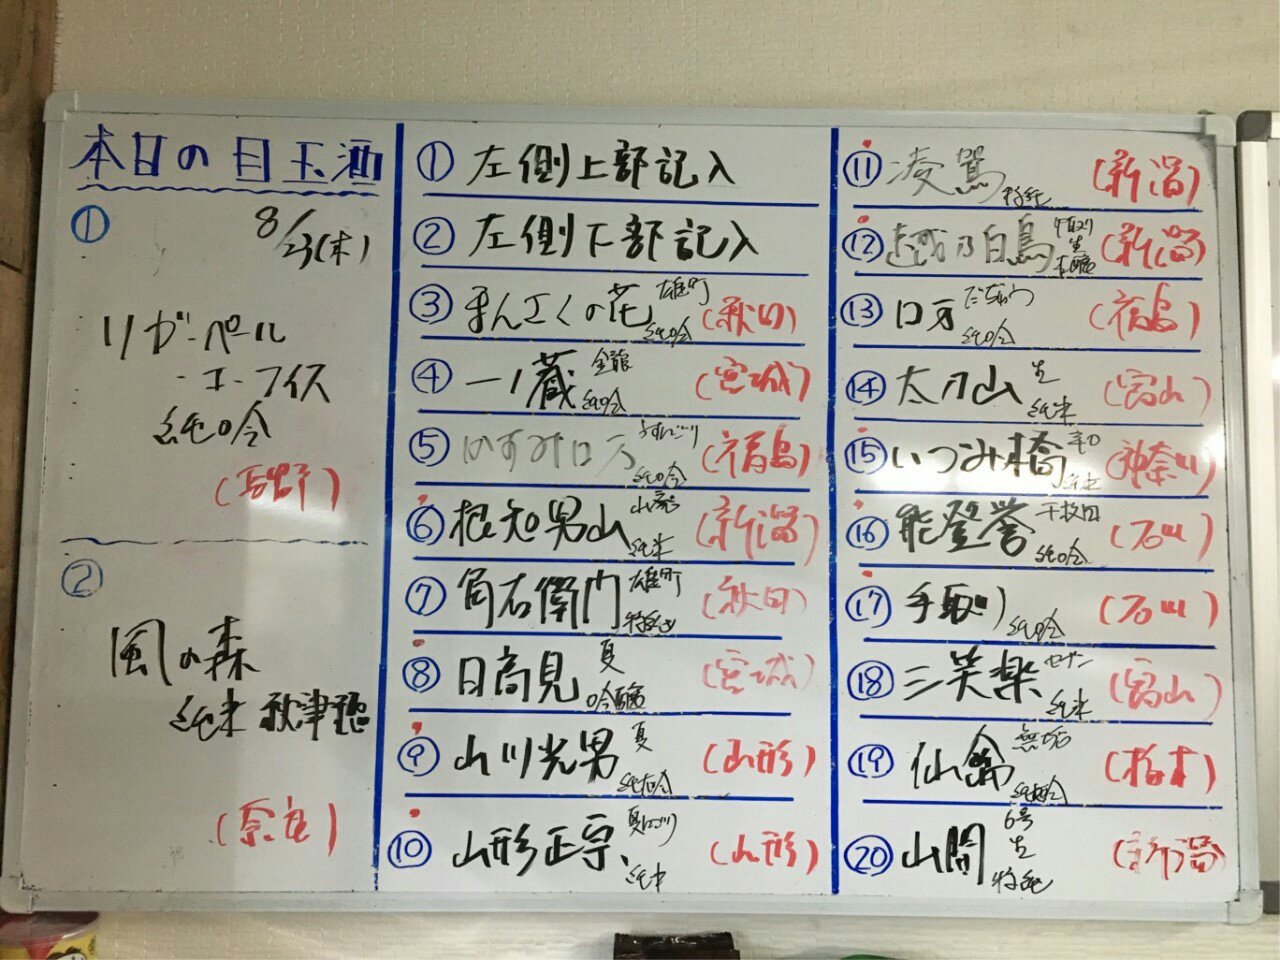 本日の目玉酒
①
8/23(木)
リガーペール
・エーフイス
純吟
(長野)
②
風の森
純米 秋津穂
(奈良)
① 左側上部記入
② 左側下部記入
③ まんさくの花 雄町 純吟 (秋田)
④ 一ノ蔵 金龍 純吟 (宮城)
⑤ かすみロ万 うすにごり 純吟 (福島)
⑥ 根知男山 山廃 純米 (新潟)
⑦ 角右衛門 雄町 特純 (秋田)
⑧ 日高見 夏 吟醸 (宮城)
⑨ 山川光男 夏 (山形)
⑩ 山形正宗 夏にごり 純米 (山形)
⑪ 凌駕 特純 (新潟)
⑫ 越乃白鳥 生 (新潟)
⑬ ロ万 だぢゅー 純吟 (福島)
⑭ 太刀山 生 純米 (富山)
⑮ いづみ橋 辛口 純米 (神奈川)
⑯ 能登誉 千枚田 純吟 (石川)
⑰ 手取川 純吟 (石川)
⑱ 三笑楽 セブン 純米 (富山)
⑲ 仙禽 無垢 (栃木)
⑳ 山間 6号 生 特純 (新潟)